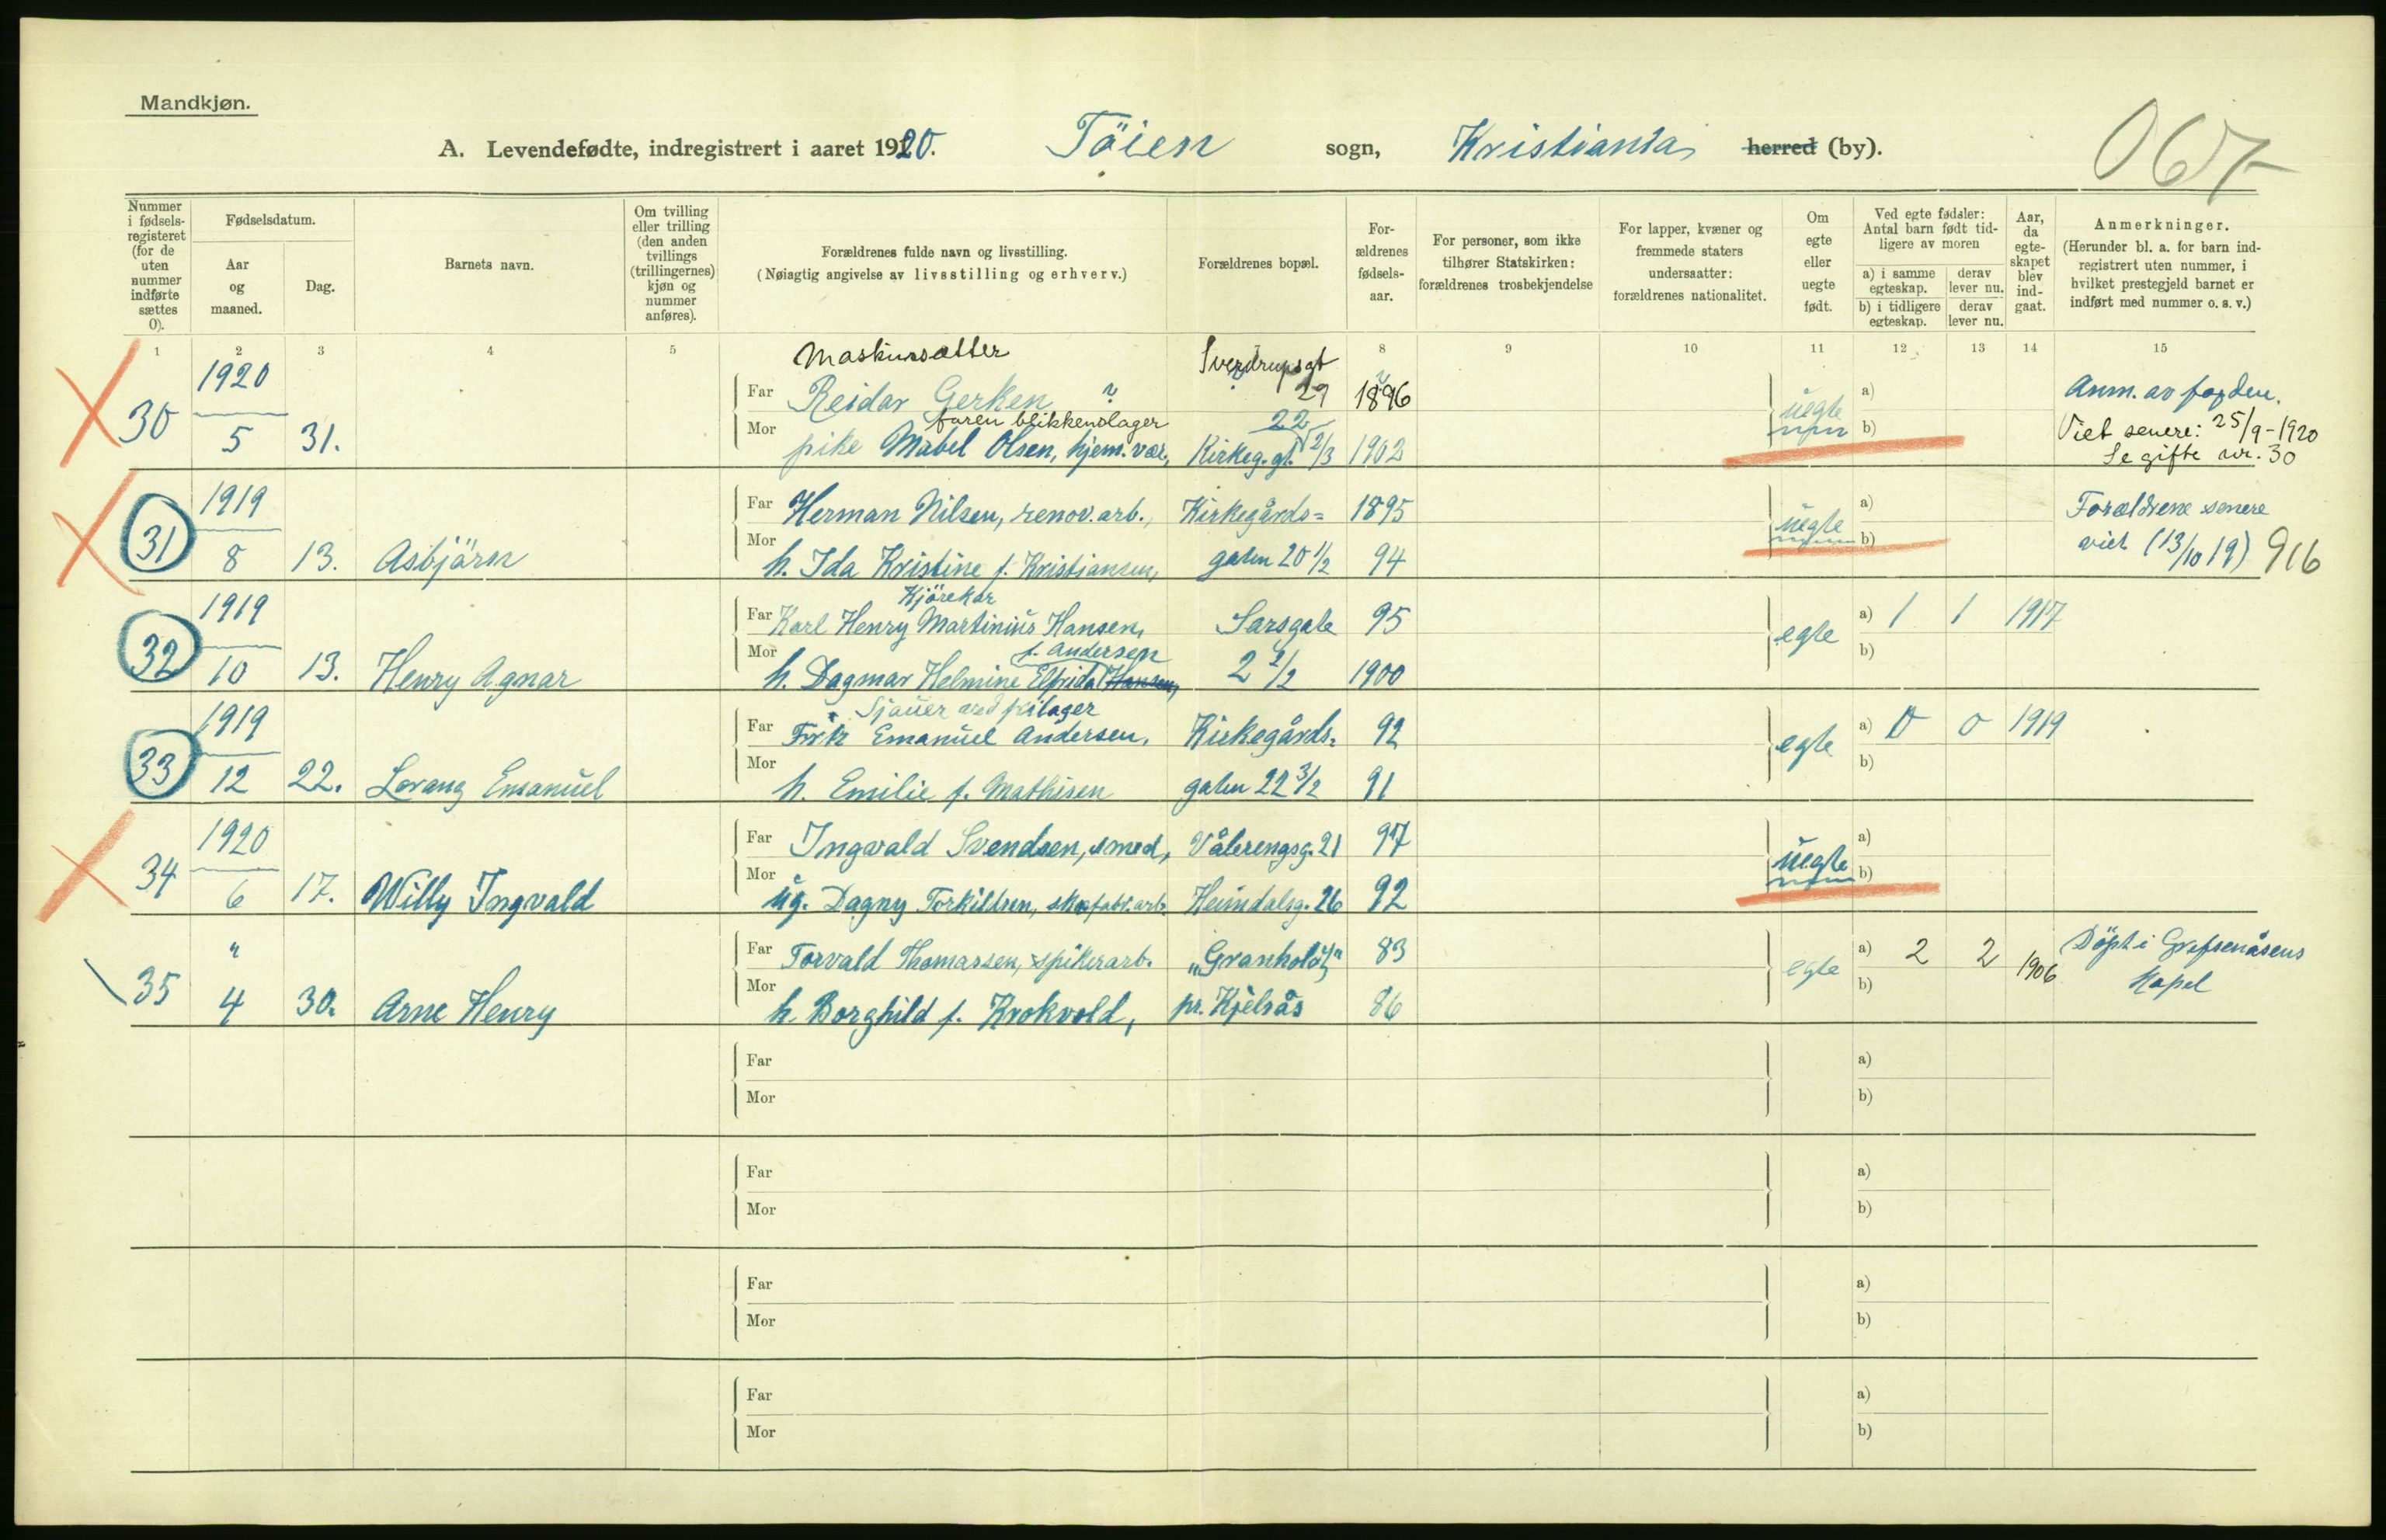 Mandkjøn.
A. Levendefødte, indregistrert i aaret 1920. Töien sogn, Kristiania herred (by).
067
Nummer i fødsels-registeret (for de uten nummer indførte sættes 0).
Fødselsdatum.
Aar og maaned.
Dag.
Barnets navn.
Om tvilling eller trilling (den anden tvillings (trillingernes) kjøn og nummer anføres).
Forældrenes fulde navn og livsstilling.
(Nøiagtig angivelse av livsstilling og erhverv.)
Forældrenes bopæl.
For-ældrenes fødsels-aar.
For personer, som ikke tilhører Statskirken: forældrenes trosbekjendelse
For lapper, kvæner og fremmede staters undersaatter: forældrenes nationalitet.
Om egte eller uegte født.
Ved egte fødsler: Antal barn født tid-ligere av moren
a) i samme egteskap. derav lever nu.
b) i tidligere egteskap. derav lever nu.
Aar, da egte-skapet blev ind-gaat.
Anmerkninger.
(Herunder bl. a. for barn ind-registrert uten nummer, i hvilket prestegjeld barnet er indført med nummer o. s. v.)
1 2 3 4 5 8 9 10 11 12 13 14 15
Maskinsætter Sverdrupsgt
1920 Far Reidar Gerken ? 29 1896 a) Anm. av
30 faren blikkenslager 22 uegte Viet senere: 25/9-1920
5 31. Mor pike Mabel Olsen, hjem. vær., Kirkeg.gt. 2/3 1902 b) Se gifte nr. 30
1919 Far Herman Nilsen, renov.arb., Kirkegårds= 1895 a) Forældrene senere
31 8 13. Asbjörn Mor h. Ida Kristine f. Kristiansen, gaten 20 1/2 94 uegte b) viet (13/10 19) 916
Kjörekar
1919 Far Karl Henry Martinius Hansen, Sarsgate 95 a) 1 1 1917
f. Andersen
32 10 13. Henry Agnar Mor h. Dagmar Helmine Elfrida Hansen, 2 2/2 1900 egte b)
Sjauer ved
1919 Far Fritz Emanuel Andersen, Kirkegårds= 92 a) 0 0 1919
33 12 22. Lorang Emanuel Mor h. Emilie f. Mathisen gaten 22 3/2 91 egte b)
1920 Far Ingvald Svendsen, smed, Vålerengsg. 21 97 a)
34 6 17. Willy Ingvald Mor ug. Dagny Torkildsen, skofabr.arb. Heimdalsg. 26 92 uegte b)
" Far Torvald Thomassen, spikerarb. 83 a) 2 2 1906 Döpt i Grefsenåsens
35 4 30. Arne Henry Mor h. Borghild f. Krokvold, pr. Kjelsås 86 egte b) Kapel
Far a)
Mor b)
Far a)
Mor b)
Far a)
Mor b)
Far a)
Mor b)